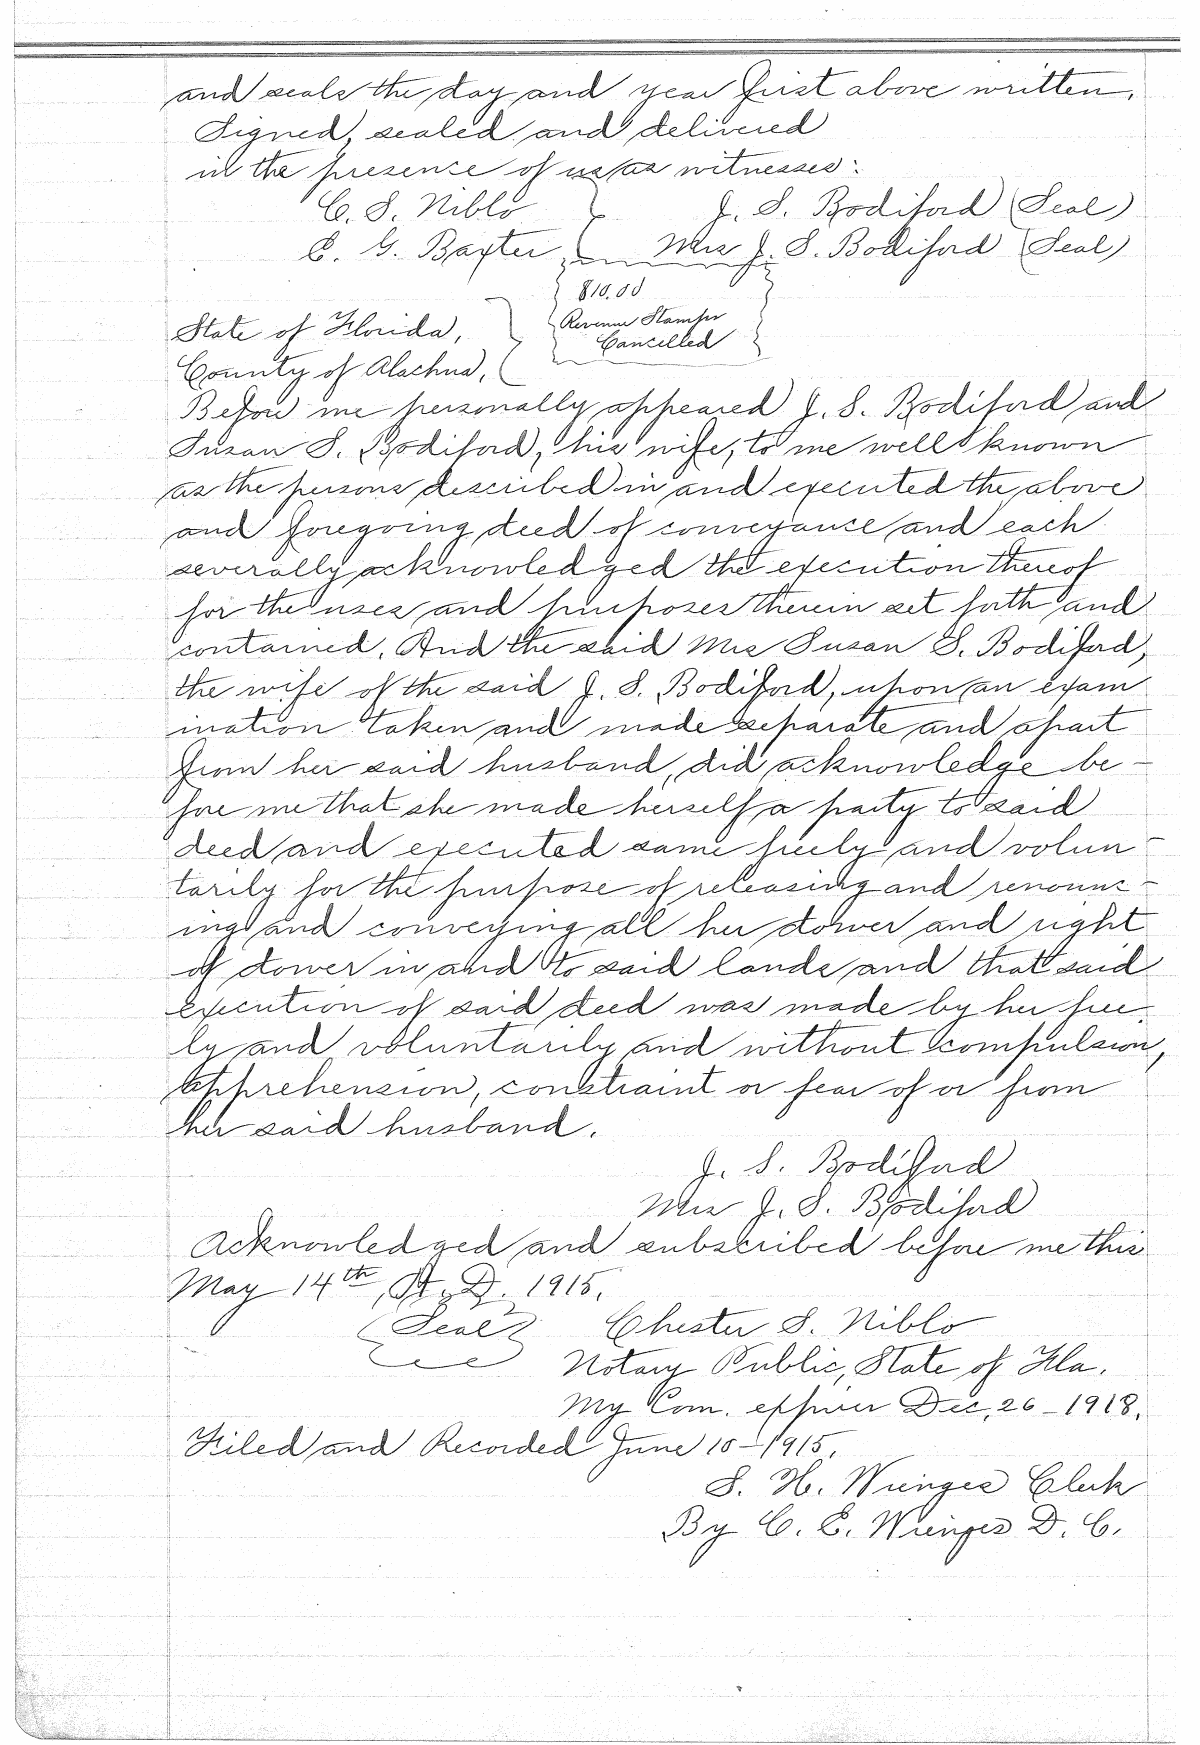 and seals the day and year first above written.
Signed, sealed and delivered
in the presence of us as witnesses:
C. S. Niblo J. S. Bodiford (Seal)
E. G. Baxter Mrs J. S. Bodiford (Seal)
$10.00
Revenue Stamps
Cancelled
State of Florida,
County of Alachua,
Before me personally appeared J. S. Bodiford and
Susan S. Bodiford, his wife, to me well known
as the persons described in and executed the above
and foregoing deed of conveyance and each
severally acknowledged the execution thereof
for the uses and purposes therein set forth and
contained. And the said Mrs Susan S. Bodiford,
the wife of the said J. S. Bodiford, upon an exam
ination taken and made separate and apart
from her said husband, did acknowledge be-
fore me that she made herself a party to said
deed and executed same freely and volun-
tarily for the purpose of releasing and renounc-
ing and conveying all her dower and right
of dower in and to said lands and that said
execution of said deed was made by her free-
ly and voluntarily and without compulsion,
apprehension, constraint or fear of or from
her said husband.
J. S. Bodiford
Mrs J. S. Bodiford
Acknowledged and subscribed before me this
May 14th, A. D. 1915.
(Seal) Chester S. Niblo
Notary Public, State of Fla.
My Com. expires Dec, 26-1918.
Filed and Recorded June 10-1915.
S. H. Wienges Clerk
By C. E. Wienges D. C.